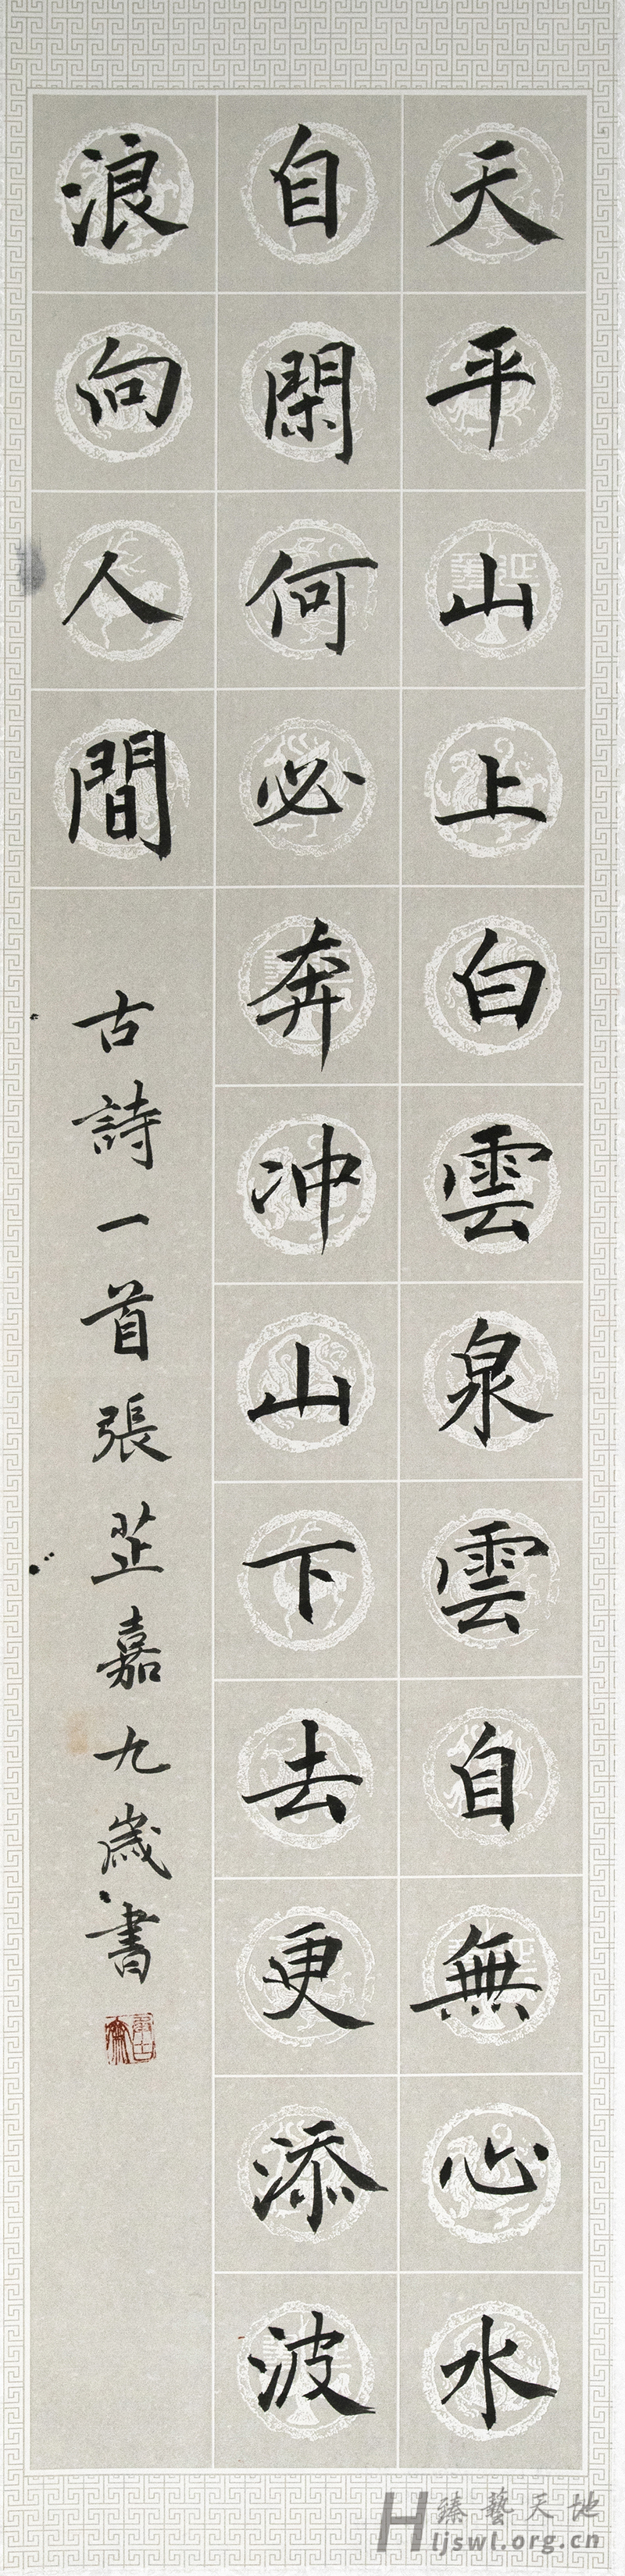 天平山上白雲泉雲自無心水
自閑何必奔冲山下去更添波
浪向人間
古詩一首張芷嘉九歲書
臻藝天地
Hljswl.org.cn